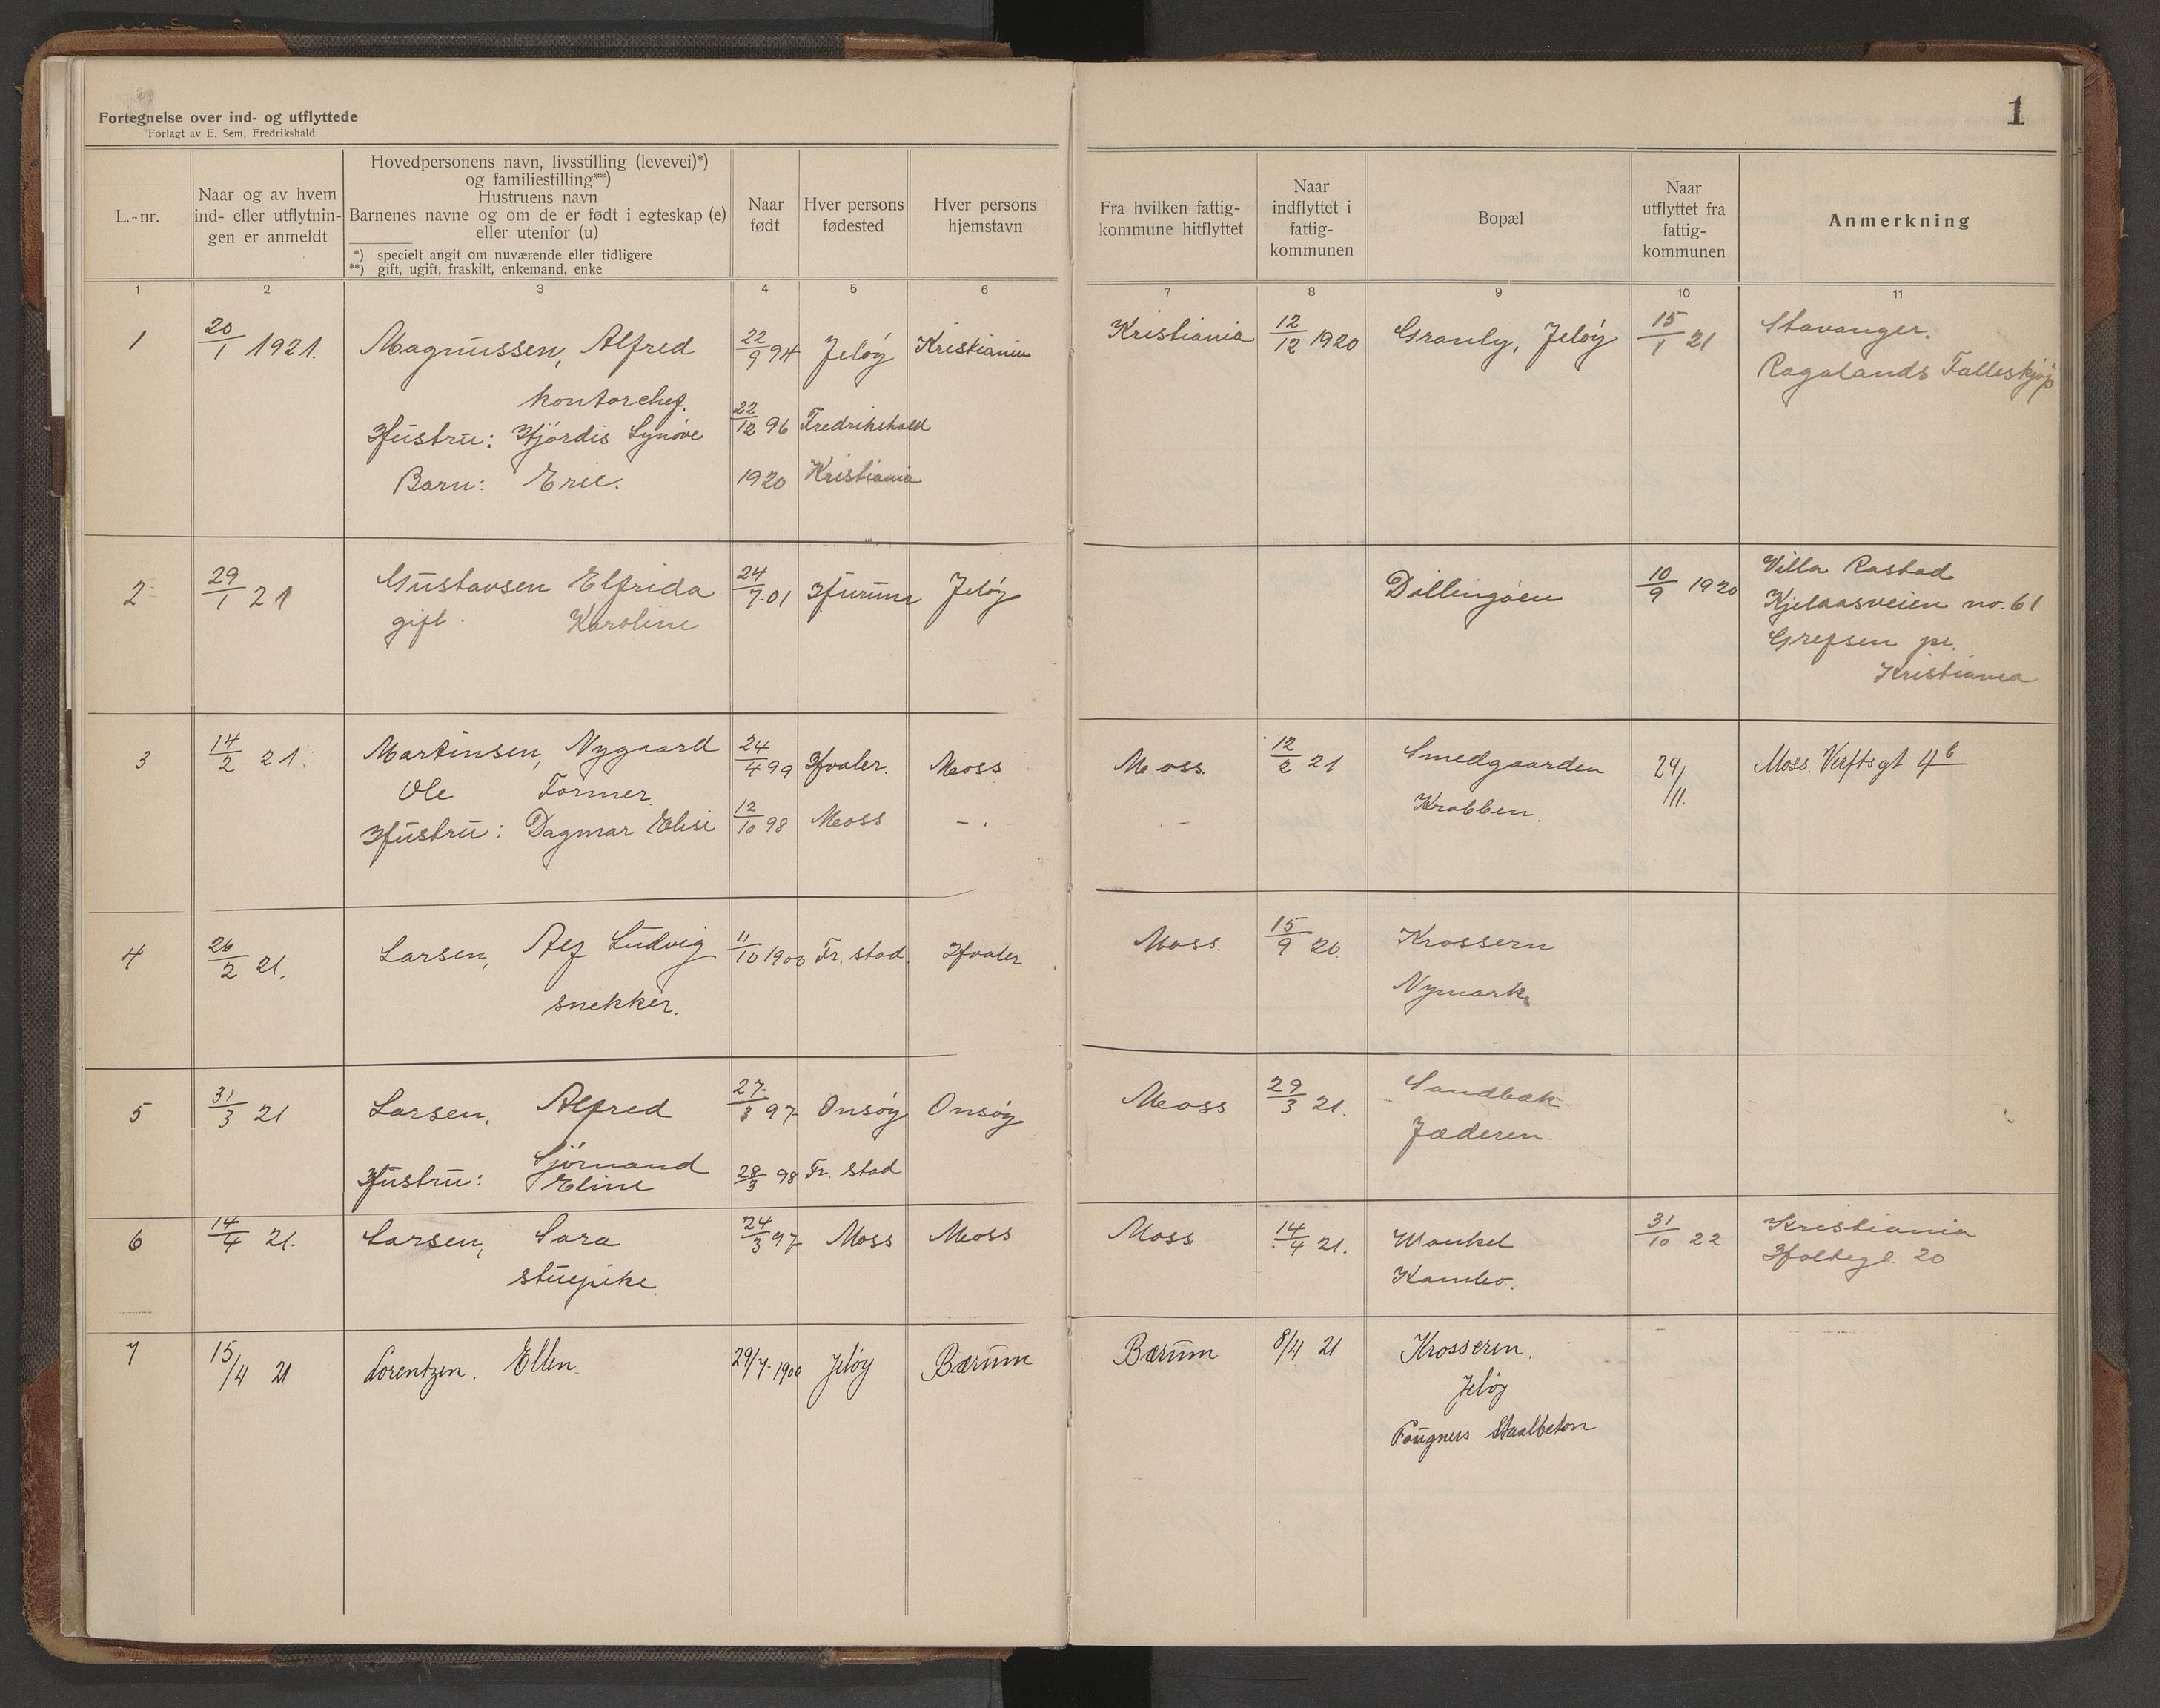 Fortegnelse over ind- og utflyttede
Forlagt av E. Sem, Fredrikshald
1
L.-nr.
Naar og av hvem
ind- eller utflytnin-
gen er anmeldt
Hovedpersonens navn, livsstilling (levevei)*)
og familiestilling**)
Hustruens navn
Barnenes navne og om de er født i egteskap (e)
eller utenfor (u)
*) specielt angit om nuværende eller tidligere
**) gift, ugift, fraskilt, enkemand, enke
Naar
født
Hver persons
fødested
Hver persons
hjemstavn
Fra hvilken fattig-
kommune hitflyttet
Naar
indflyttet i
fattig-
kommunen
Bopæl
Naar
utflyttet fra
fattig-
kommunen
Anmerkning
1 2 3 4 5 6 7 8 9 10 11
1 20/1 1921. Magnussen, Alfred 22/9 94 Jeløy Kristiania Kristiania 12/12 1920 Granly, Jeløy 15/1 21 Stavanger.
kontorchef. Rogalands Falleskjøp
Hustru: Hjördis Synöve 22/12 96 Fredrikshald
Barn: Eric. 1920 Kristiania
2 29/1 21 Gustavsen Elfrida 24/7 01 Hurum Jeløy Dillingöen 10/9 1920 Villa Rastad
gift. Karoline Kjelaasveien no. 61
Grefsen pr.
Kristiania
3 14/2 21. Martinsen, Nygaard 24/4 99 Hvaler. Moss Moss. 12/2 21 Smedgaarden 29/11. Moss. Verftsgt 4b
Ole Former. Krabben.
Hustru: Dagmar Elise 12/10 98 Moss -. -
4 26/2 21. Larsen, Alf Ludvig 11/10 1900 Fr. stad. Hvaler Moss. 15/9 20. Krossern
snekker. Nymark
5 31/3 21 Larsen, Alfred 27/3 97 Onsøy Onsøy Moss 29/3 21. Sandbæk
Jæderen.
Sjörnand
Hustru: Eline 28/3 98 Fr. stad
6 14/4 21. Larsen, Sara 24/3 97 Moss Moss Moss 14/4 21. Wankel 31/10 22 Kristiania
stuepike. Kambo. Holtegt. 20
7 15/4 21 Lorentzen, Ellen. 29/7 1900 Jeløy Bærum Bærum 8/4 21 Krosseren.
Jeløy
Fougners Staalbeton